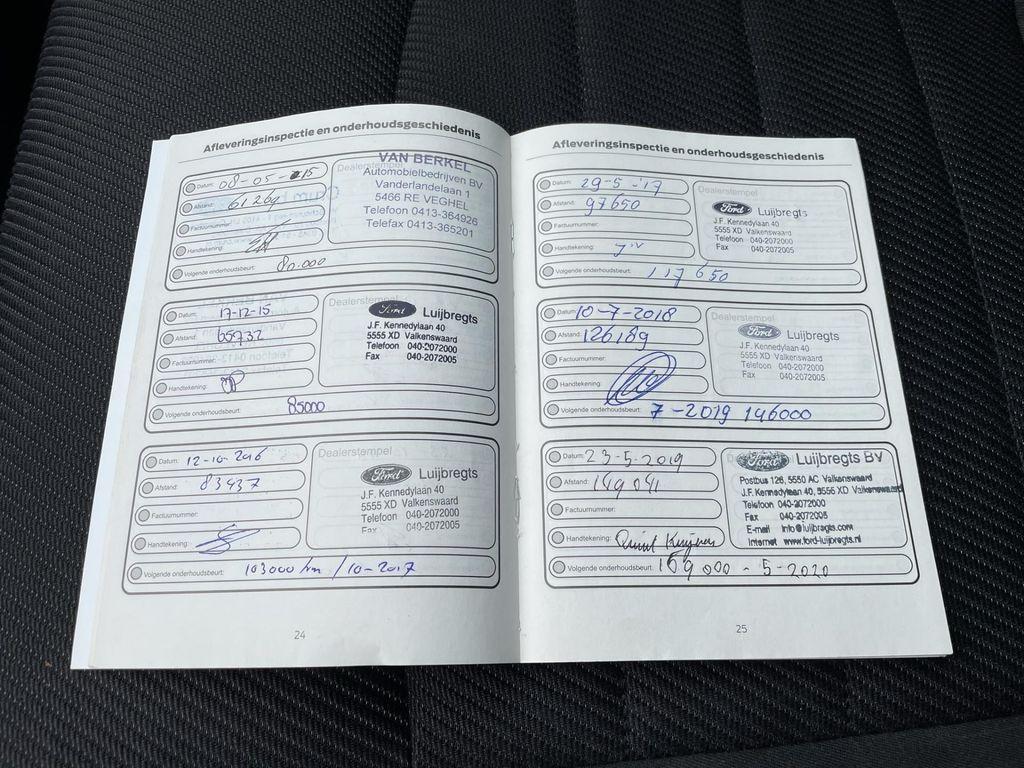 Afleveringsinspectie en onderhoudsgeschiedenis
Datum: 08-05-15
Afstand: 61269
Factuurnummer:
Handtekening:
Volgende onderhoudsbeurt: 80.000
Dealerstempel
VAN BERKEL
Automobielbedrijven BV
Vanderlandelaan 1
5466 RE VEGHEL
Telefoon 0413-364926
Telefax 0413-365201
Datum: 17-12-15
Afstand: 65732
Factuurnummer:
Handtekening:
Volgende onderhoudsbeurt: 85000
Dealerstempel
Ford Luijbregts
J.F. Kennedylaan 40
5555 XD Valkenswaard
Telefoon 040-2072000
Fax 040-2072005
Datum: 12-10-2016
Afstand: 83437
Factuurnummer:
Handtekening:
Volgende onderhoudsbeurt: 103000 km / 10-2017
Dealerstempel
Ford Luijbregts
J.F. Kennedylaan 40
5555 XD Valkenswaard
Telefoon 040-2072000
Fax 040-2072005
24
Afleveringsinspectie en onderhoudsgeschiedenis
Datum: 29-5-'17
Afstand: 97650
Factuurnummer:
Handtekening:
Volgende onderhoudsbeurt: 117650
Dealerstempel
Ford Luijbregts
J.F. Kennedylaan 40
5555 XD Valkenswaard
Telefoon 040-2072000
Fax 040-2072005
Datum: 10-7-2018
Afstand: 126189
Factuurnummer:
Handtekening:
Volgende onderhoudsbeurt: 7-2019 146000
Dealerstempel
Ford Luijbregts
J.F. Kennedylaan 40
5555 XD Valkenswaard
Telefoon 040-2072000
Fax 040-2072005
Datum: 23-5-2019
Afstand: 149041
Factuurnummer:
Handtekening:
Volgende onderhoudsbeurt: 169000 - 5-2020
Ford Luijbregts BV
Postbus 126, 5550 AC Valkenswaard
J.F. Kennedylaan 40, 5556 XD Valkenswaard
Telefoon 040-2072000
Fax 040-2072005
E-mail info@luijbregts.com
Internet www.ford-luijbregts.nl
25